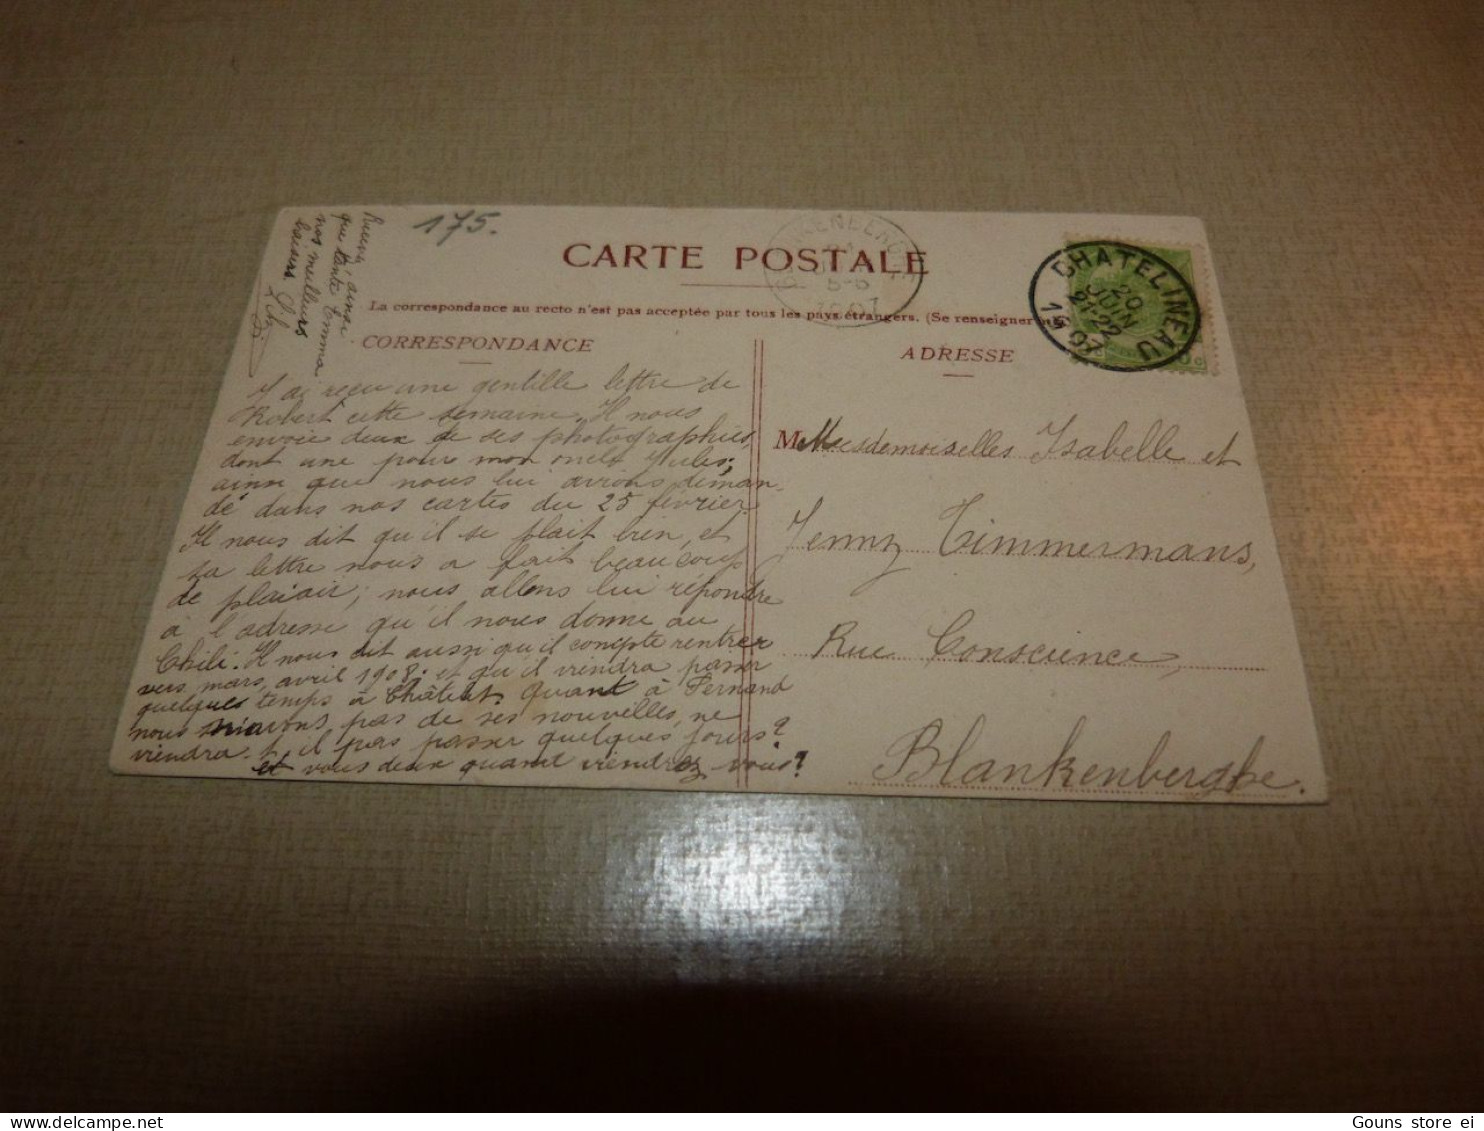 175.
CARTE POSTALE
La correspondance au recto n'est pas acceptée par tous les pays étrangers. (Se renseigner
CORRESPONDANCE
ADRESSE
BLANKENBERGHE
5-6
1907
CHATELINEAU
20
JUIN
21-22
1907
que tante Emma
nos meilleurs
baisers
J'ai reçu une gentille lettre de
Robert cette semaine. Il nous
envoie deux de ses photographies,
dont une pour mon oncle Jules;
ainsi que nous lui avions deman-
dé dans nos cartes du 25 février.
Il nous dit qu'il se plait bien, et
sa lettre nous a fait beaucoup
de plaisir; nous allons lui répondre
à l'adresse qu'il nous donne au
Chili. Il nous dit aussi qu'il compte rentrer
vers mars, avril 1908. et qu'il viendra passer
quelques temps à Châtelet. Quant à Fernand
nous n'avons pas de ses nouvelles, ne
viendra-t-il pas passer quelques jours?
et vous deux quand viendrez vous?
M Mesdemoiselles Isabelle et
Jenny Timmermans,
Rue Conscience,
Blankenberghe.
Gouns store ei